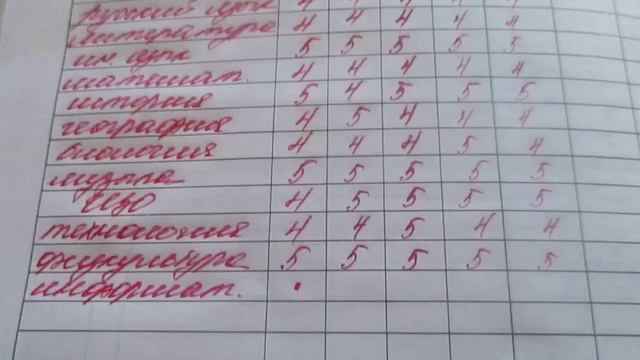 русский язык 4 4 4 4 4
литература 4 4 4 4 4
ин. язык 5 5 5 5 5
математ. 4 4 4 4 4
история 5 4 5 5 5
география 4 5 4 4 4
биология 4 4 4 5 4
музыка 5 5 5 5 5
ИЗО 4 5 5 5 5
технология 4 4 5 4 4
физкультура 5 5 5 5 5
информат.